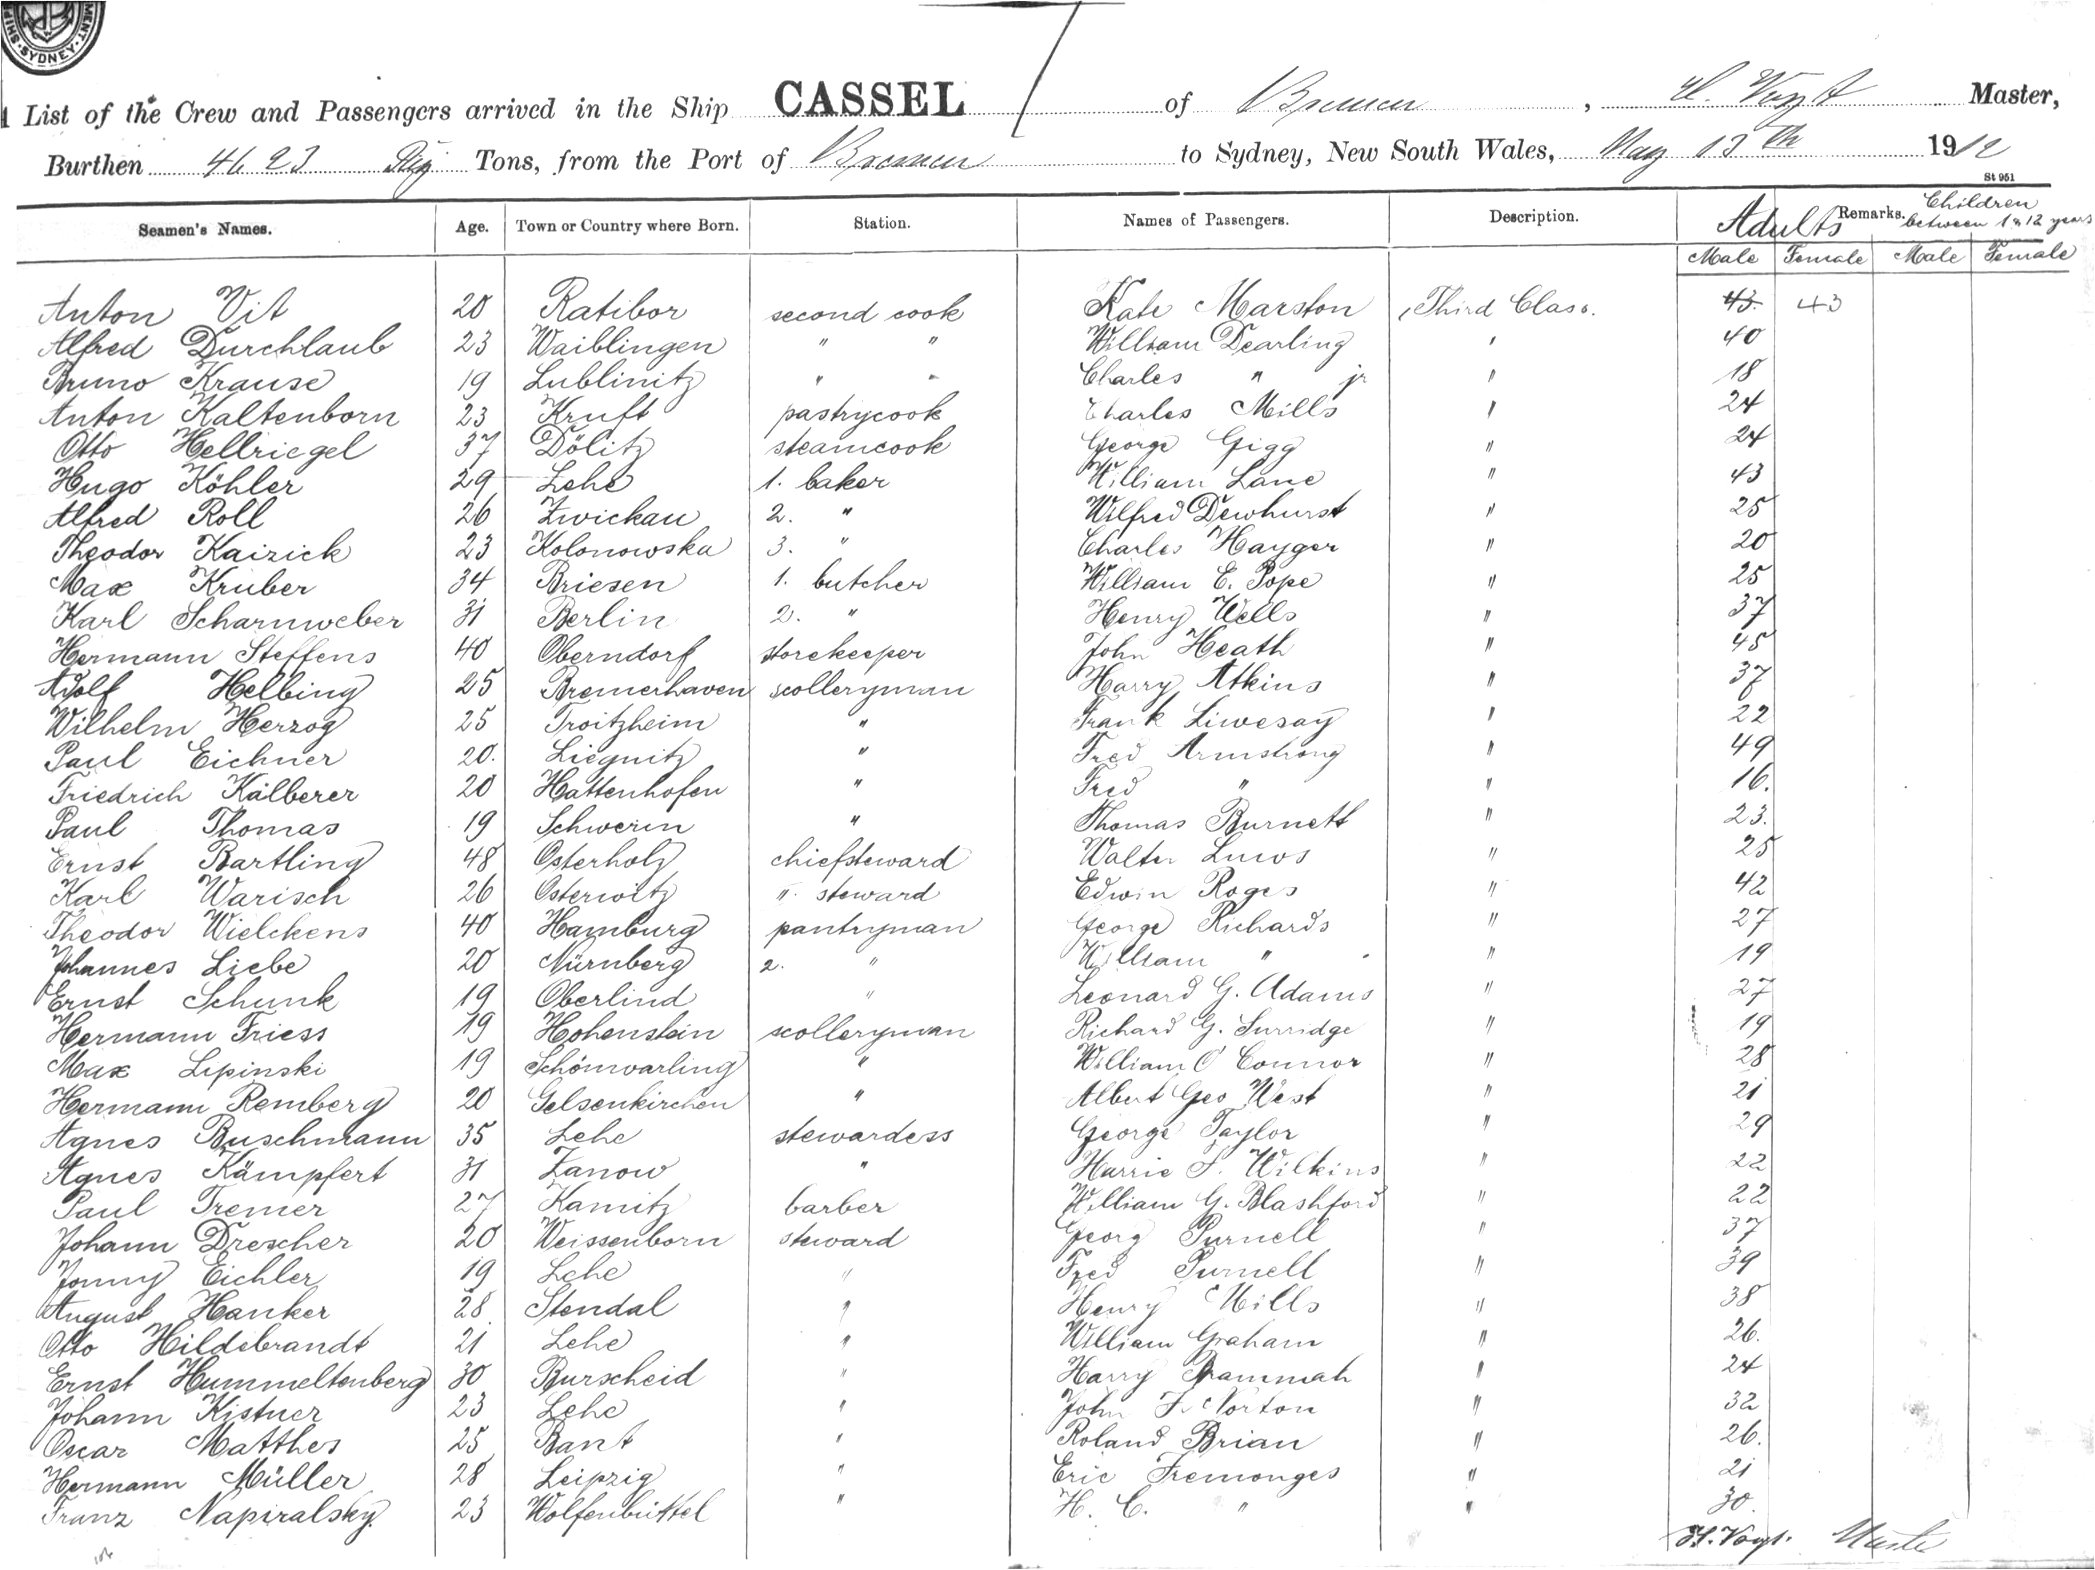 SYDNEY
A List of the Crew and Passengers arrived in the Ship CASSEL of Bremen, H. Vogt Master,
Burthen 4623 Reg Tons, from the Port of Bremen to Sydney, New South Wales, May 13th 1912
St 951
Seamen's Names. Age. Town or Country where Born. Station. Names of Passengers. Description. Adults Remarks. Children between 1 & 12 years
Male Female Male Female
Anton Vit 20 Ratibor second cook Kate Marston Third Class. 43. 43
Alfred Durchlaub 23 Waiblingen " " William Dearling " 40
Bruno Krause 19 Lublinitz " " Charles " jr " 18
Anton Kaltenborn 23 Kruft pastrycook Charles Mills " 24
Otto Hellriegel 37 Dölitz steamcook George Gigg " 24
Hugo Köhler 29 Lehe 1. baker William Lane " 43
Alfred Roll 26 Zwickau 2. " Wilfred Dewhurst " 25
Theodor Kaizick 23 Kolonowska 3. " Charles Hayger " 20
Max Kruber 34 Briesen 1. butcher William E. Pope " 25
Karl Scharnweber 31 Berlin 2. " Henry Wells " 37
Hermann Steffens 40 Oberndorf storekeeper John Heath " 45
Adolf Helbing 25 Bremerhaven scolleryman Harry Atkins " 37
Wilhelm Herzog 25 Troitzheim " Frank Liwesay " 22
Paul Eichner 20. Liegnitz " Fred Armstrong " 49
Friedrich Kälberer 20 Hattenhofen " Fred " " 16.
Paul Thomas 19 Schwerin " Thomas Burnett " 23.
Ernst Bartling 48 Osterholz chiefsteward Walter Luws " 25
Karl Warisch 26 Osterwitz II. steward Edwin Roges " 42
Theodor Wielckens 40 Hamburg pantryman George Richards " 27
Johannes Liebe 20 Nürnberg 2. " William " " 19
Ernst Schunk 19 Oberlind " Leonard G. Adams " 27
Hermann Friess 19 Hohenstein scolleryman Richard G. Surridge " 19
Max Lipinski 19 Schönwarling " William O'Connor " 28
Hermann Remberg 20 Gelsenkirchen " Albert Geo West " 21
Agnes Buschmann 35 Lehe stewardess George Taylor " 29
Agnes Kämpfert 31 Zanow " Harrie S. Wilkins " 22
Paul Tremer 27 Kamitz barber William G. Blashford " 22
Johann Drescher 20 Weissenborn steward Georg Purnell " 37
Jonny Eichler 19 Lehe " Fred Purnell " 39
August Hanker 28 Stendal " Henry Mills " 38
Otto Hildebrandt 21 Lehe " William Graham " 26.
Ernst Hummeltenberg 30 Burscheid " Harry Brammah " 24
Johann Kistner 23 Lehe " John F. Norton " 32
Oscar Matthes 25 Bant " Roland Brian " 26.
Hermann Müller 28 Leipzig " Eric Fremonges " 21
Franz Napiralsky. 23 Wolfenbüttel " H. C. " " 30.
H. Vogt. Master